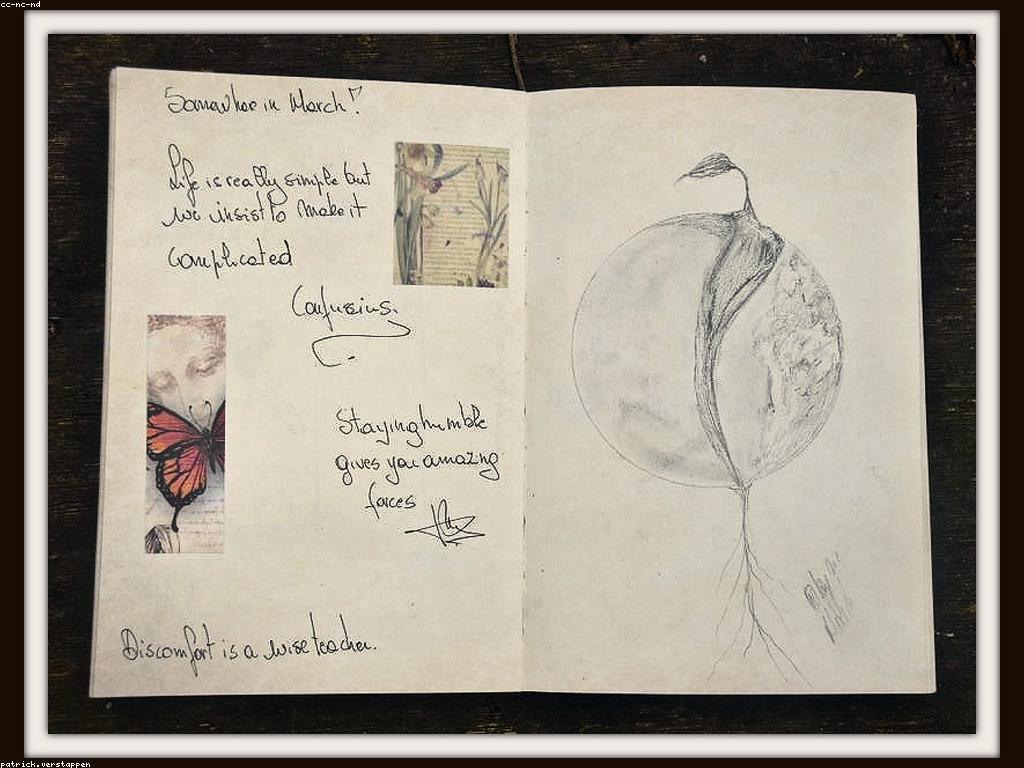 cc-nc-nd
Somewher in March!
Life is really simple but
we insist to make it
complicated
Confussius.
Staying humble
gives you amazing
forces
Discomfort is a wise teacher.
patrick.verstappen